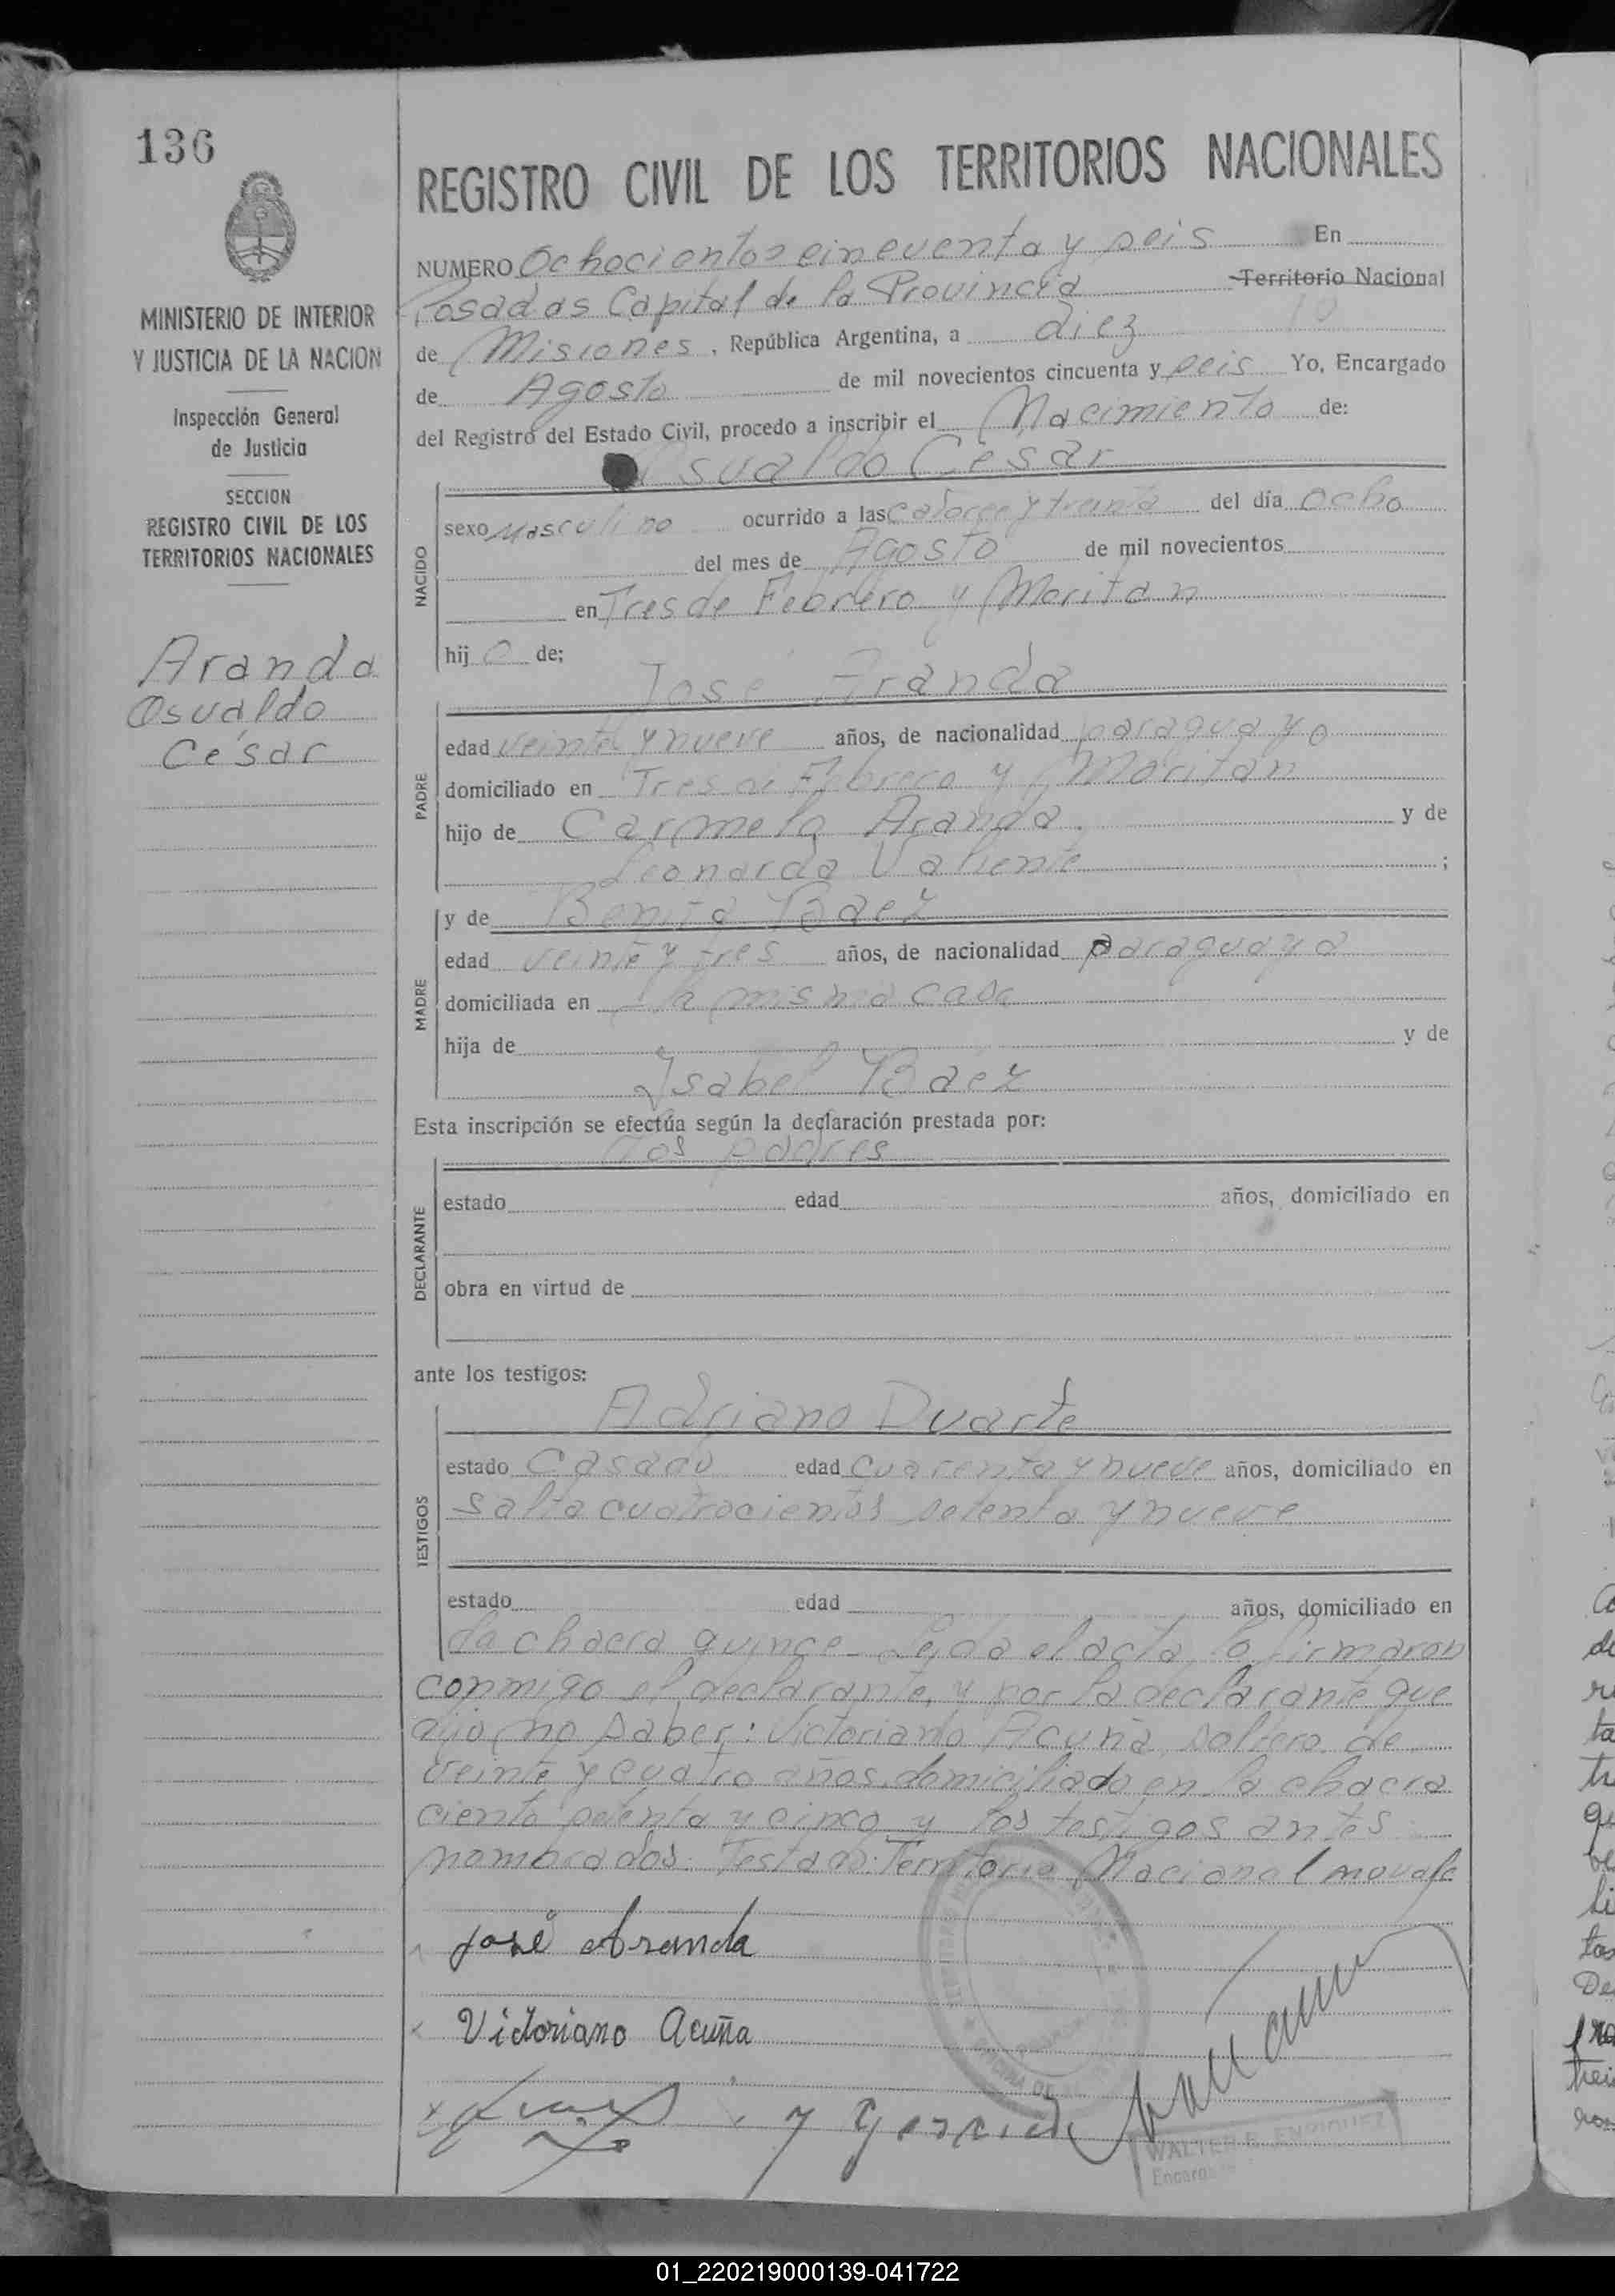 136
MINISTERIO DE INTERIOR
Y JUSTICIA DE LA NACION
Inspección General
de Justicia
SECCION
REGISTRO CIVIL DE LOS
TERRITORIOS NACIONALES
Aranda
Osvaldo
César
REGISTRO CIVIL DE LOS TERRITORIOS NACIONALES
NUMERO Ochocientos cincuenta y seis En
Posadas Capital de la Provincia Territorio Nacional
de Misiones, República Argentina, a diez 10
de Agosto de mil novecientos cincuenta y seis Yo, Encargado
del Registro del Estado Civil, procedo a inscribir el Nacimiento de:
Osvaldo Cesar
NACIDO
sexo Masculino ocurrido a las catorce y treinta del día ocho
del mes de Agosto de mil novecientos
en Tres de Febrero y Moritan
hijo de;
José Aranda
PADRE
edad veinte y nueve años, de nacionalidad paraguayo
domiciliado en Tres de Febrero y Moritan
hijo de Carmelo Aranda y de
Leonarda Valiente ;
MADRE
y de Benita Baez
edad veinte y tres años, de nacionalidad paraguaya
domiciliada en la misma casa
hija de y de
Isabel Baez
Esta inscripción se efectúa según la declaración prestada por:
los padres
DECLARANTE
estado edad años, domiciliado en
obra en virtud de
ante los testigos:
Adriano Duarte
TESTIGOS
estado Casado edad cuarenta y nueve años, domiciliado en
Salta cuatrocientos setenta y nueve
estado edad años, domiciliado en
la chacra quince. Leida el acta, la firmaron
conmigo el declarante, y por la declarante que
dijo no saber: Victoriano Acuña, soltero de
veinte y cuatro años, domiciliado en la chacra
ciento setenta y cinco y los testigos antes
nombrados. Testado: Territorio Nacional no vale
José Aranda
Victoriano Acuña
y Garcia
WALTER E. ENRIQUEZ
Encargado
01_220219000139-041722